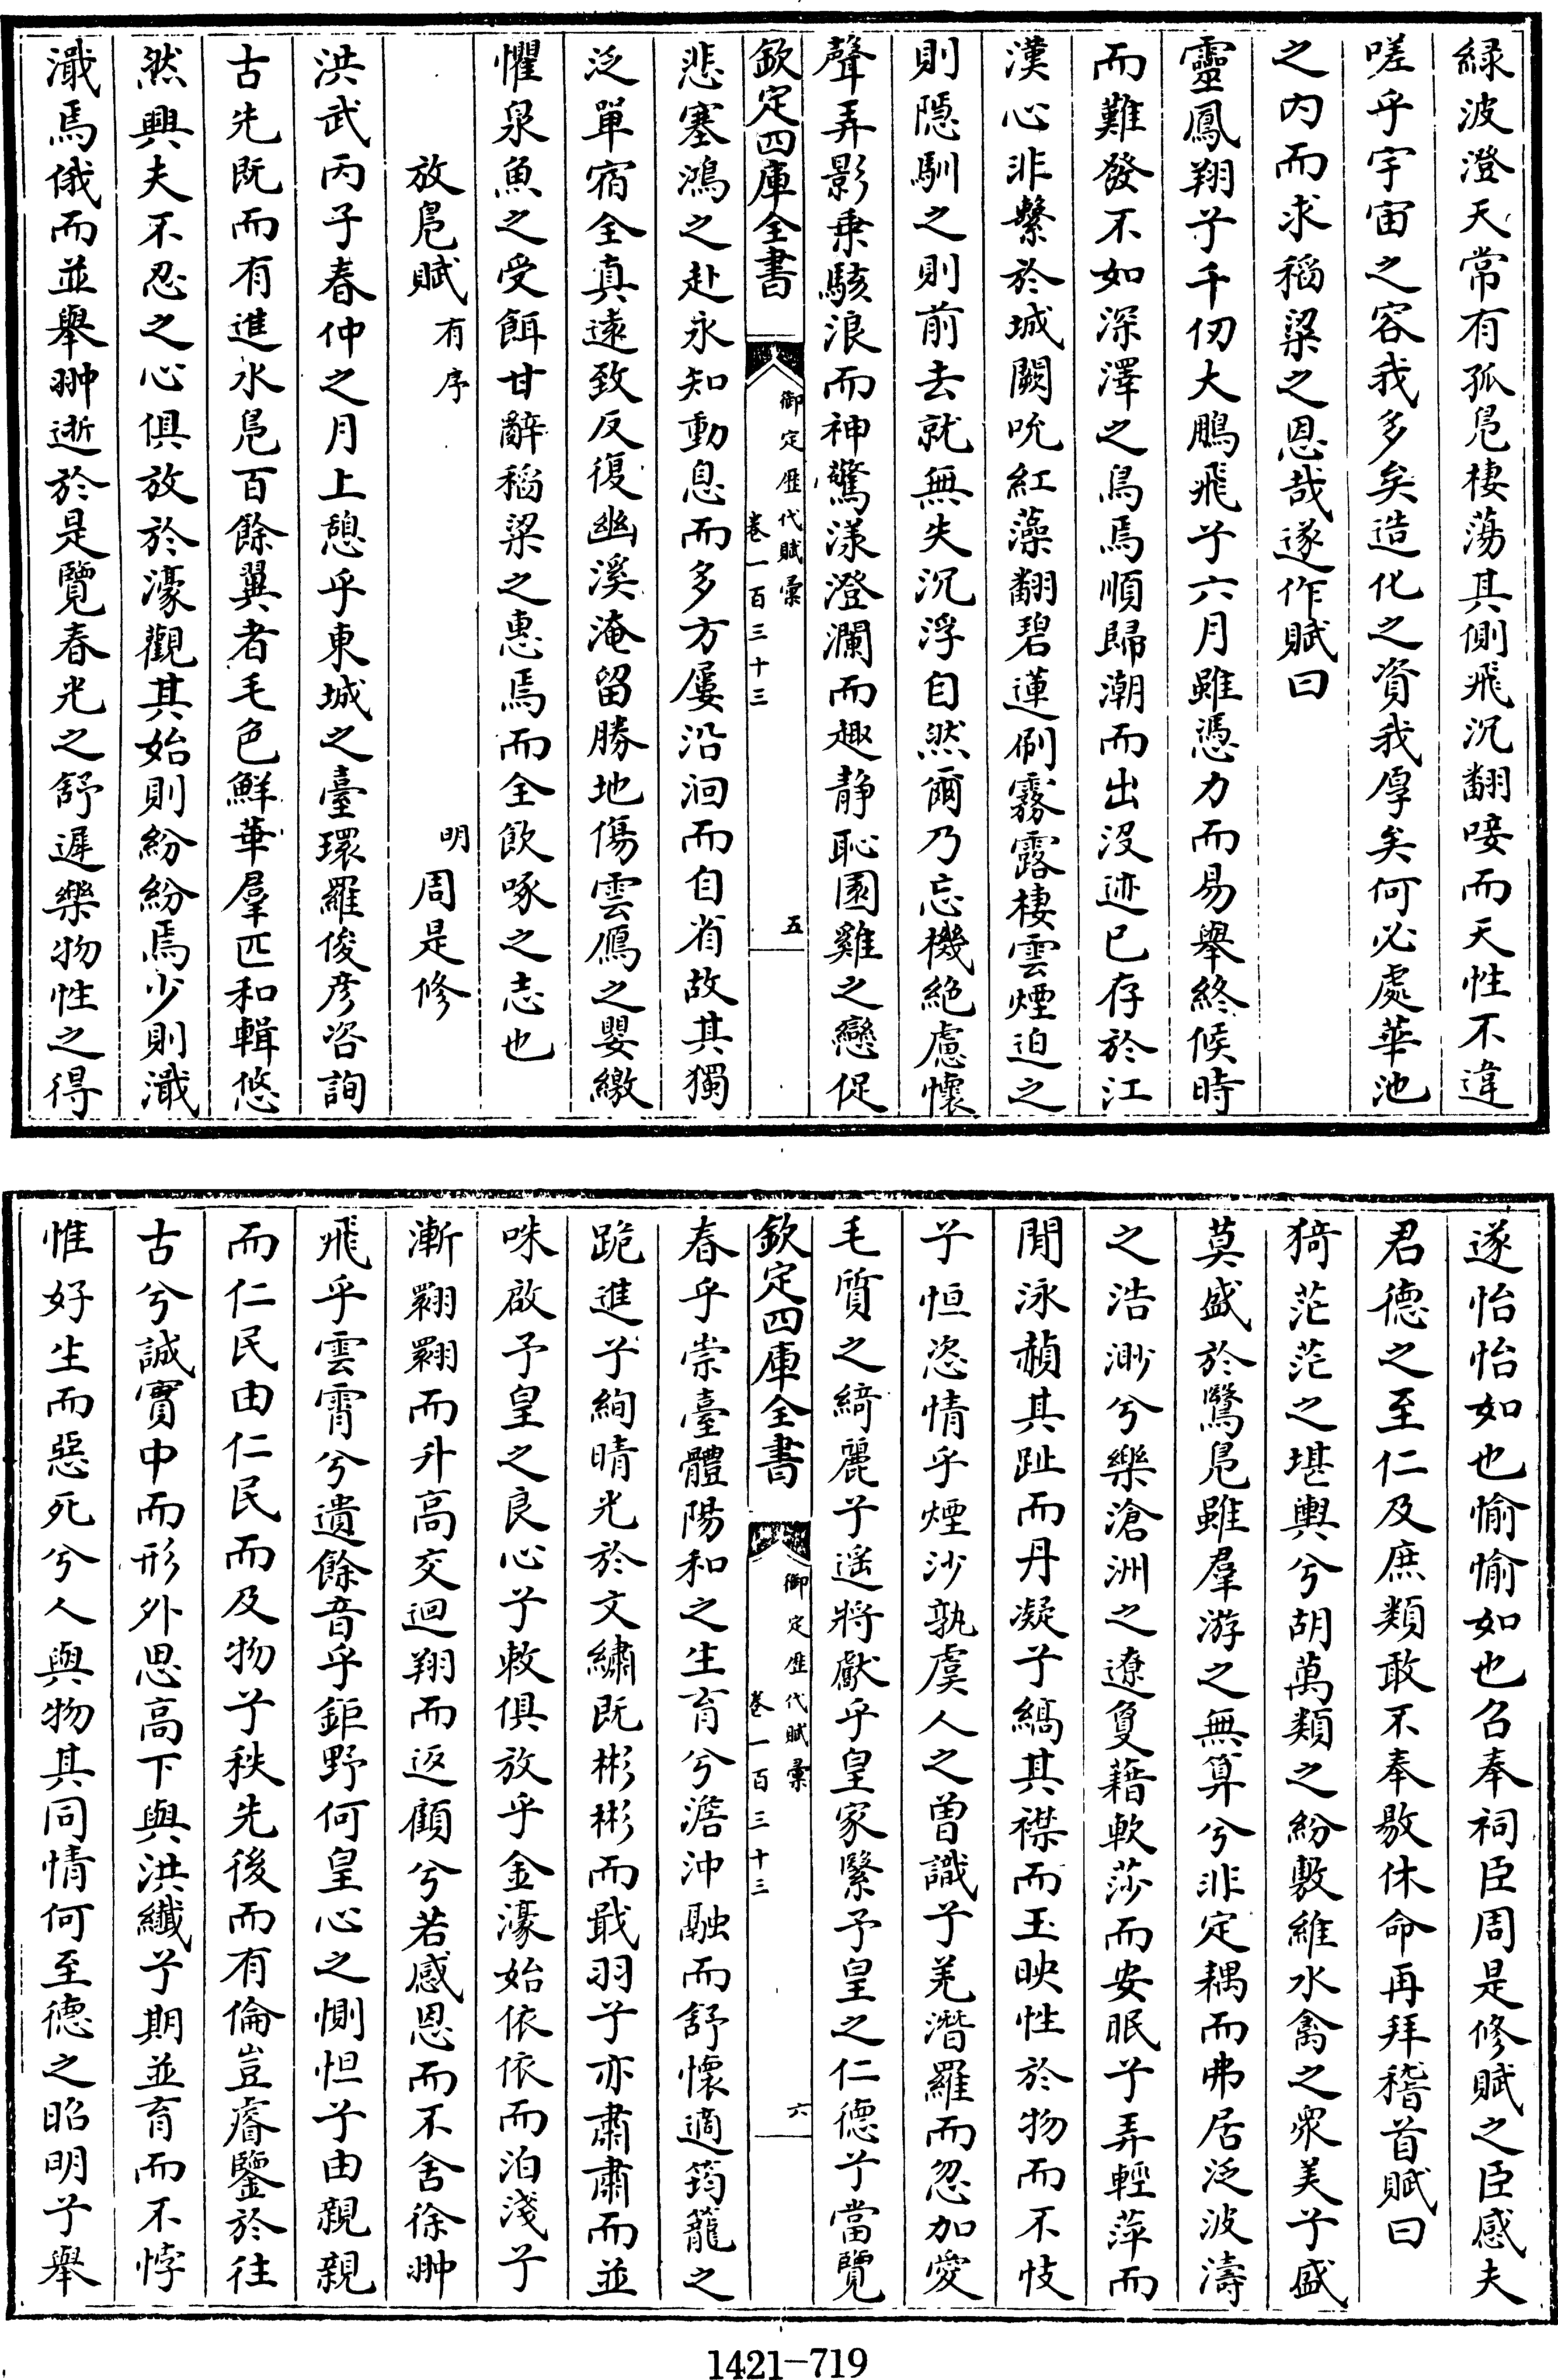 緑波澄天常有孤鳬棲蕩其側飛沉翻唼而天性不違
嗟乎宇宙之容我多矣造化之資我厚矣何必處華池
之内而求稻粱之恩哉遂作賦曰
靈鳳翔兮千仞大鵬飛兮六月雖憑力而易舉終候時
而難發不如深澤之鳥焉順歸潮而出沒迹已存於江
漢心非繫於城闕吮紅藻翻碧蓮刷霧露棲雲煙迫之
則隠馴之則前去就無失沉浮自然爾乃忘機絶慮懷
聲弄影乗駭浪而神驚漾澄瀾而趣静恥園雞之戀促
欽定四庫全書
御定歴代賦彙
卷一百三十三
五
悲塞鴻之赴永知動息而多方屢沿洄而自省故其獨
泛單宿全真逺致反復幽溪淹留勝地傷雲鴈之嬰繳
懼泉魚之受餌甘辭稻粱之惠焉而全飲啄之志也
放鳬賦有序
明周是修
洪武丙子春仲之月上憩乎東城之臺環羅俊彦咨詢
古先既而有進水鳬百餘翼者毛色鮮華羣匹和輯悠
然興夫不忍之心俱放於濠觀其始則紛紛焉少則濈
濈焉俄而並舉翀逝於是覽春光之舒遲樂物性之得
遂怡怡如也愉愉如也召奉祠臣周是修賦之臣感夫
君德之至仁及庶類敢不奉敭休命再拜稽首賦曰
猗茫茫之堪輿兮胡萬類之紛敷維水禽之衆美兮盛
莫盛於鷖鳬雖羣游之無算兮非定耦而弗居泛波濤
之浩渺兮樂滄洲之遼夐藉軟莎而安眠兮弄輕萍而
閒泳赬其趾而丹凝兮縞其襟而玉映性於物而不忮
兮恒恣情乎煙沙孰虞人之曽識兮羌潛羅而忽加愛
毛質之綺麗兮遥將獻乎皇家繄予皇之仁德兮當覽
欽定四庫全書
御定歴代賦彙
卷一百三十三
六
春乎崇臺體陽和之生育兮澹沖融而舒懷適筠籠之
跪進兮絢晴光於文繡既彬彬而戢羽兮亦肅肅而並
咮啟予皇之良心兮敕俱放乎金濠始依依而泊淺兮
漸翾翾而升高交迴翔而返顧兮若感恩而不舍徐翀
飛乎雲霄兮遺餘音乎鉅野何皇心之惻怛兮由親親
而仁民由仁民而及物兮秩先後而有倫豈睿鑒於往
古兮誠實中而形外思高下與洪纖兮期並育而不悖
惟好生而惡死兮人與物其同情何至德之昭明兮舉
1421-719